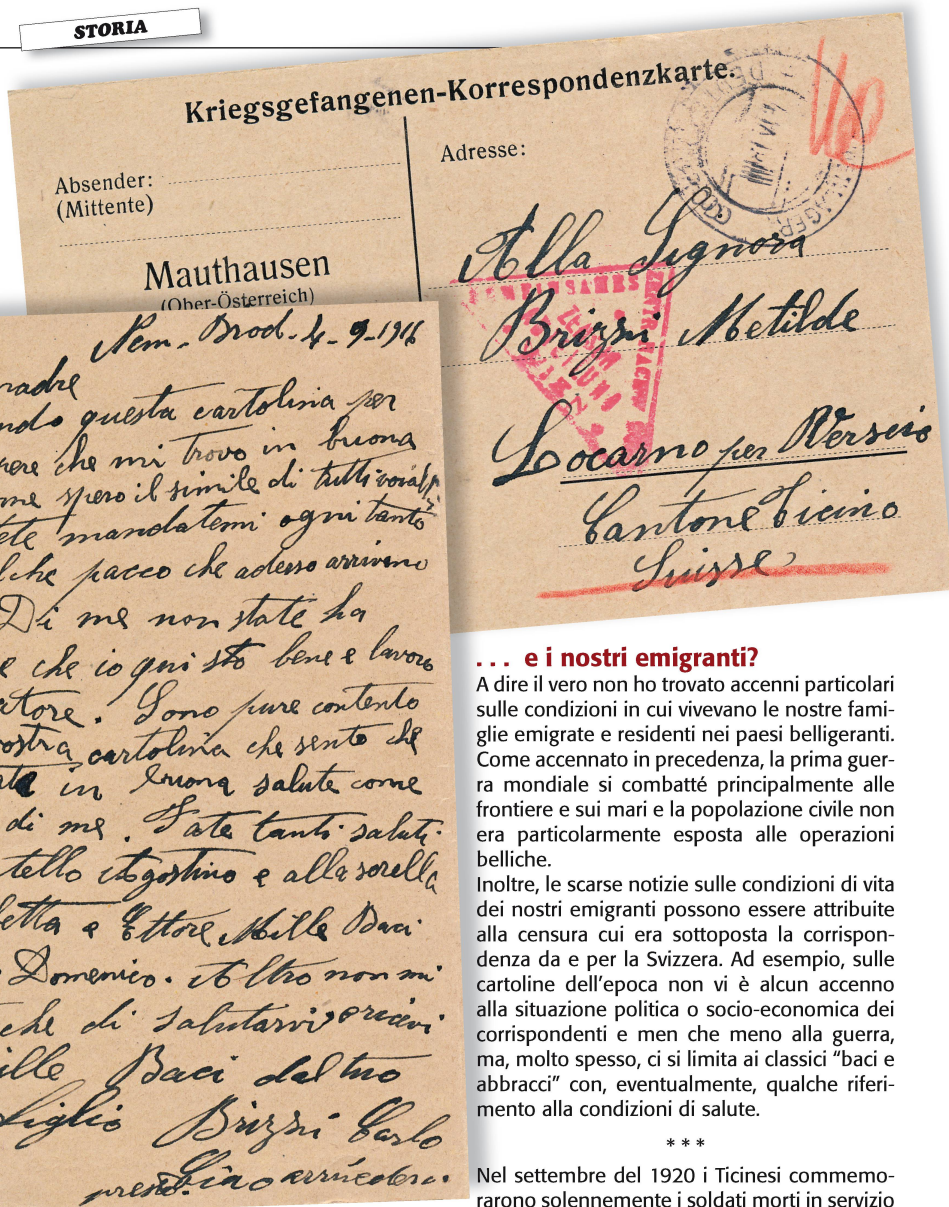 STORIA
Kriegsgefangenen-Korrespondenzkarte.
Absender:
(Mittente)
Mauthausen
(Ober-Österreich)
Adresse:
Alla Signora
Brizzi Metilde
Locarno per Verscio
Cantone Ticino
Suisse
Nem. Brod. 4-9-1916
madre
ndo questa cartolina per
rere che mi trovo in buona
me spero il simile di tutti voi
ete mandatemi ogni tanto
lche pacco che adesso arrivano
Di me non state ha
e che io qui sto bene e lavoro
atore. Sono pure contento
ostra cartolina che sento che
in buona salute come
di me. Fate tanti saluti
tello Agostino e alla sorella
letta e Ettore Mille Baci
e Domenico. Altro non mi
che di salutarvi ricevi
ille Baci dal tuo
figlio Brizzi Carlo
presto. Ciao arriveder
. . . e i nostri emigranti?
A dire il vero non ho trovato accenni particolari
sulle condizioni in cui vivevano le nostre fami-
glie emigrate e residenti nei paesi belligeranti.
Come accennato in precedenza, la prima guer-
ra mondiale si combatté principalmente alle
frontiere e sui mari e la popolazione civile non
era particolarmente esposta alle operazioni
belliche.
Inoltre, le scarse notizie sulle condizioni di vita
dei nostri emigranti possono essere attribuite
alla censura cui era sottoposta la corrispon-
denza da e per la Svizzera. Ad esempio, sulle
cartoline dell'epoca non vi è alcun accenno
alla situazione politica o socio-economica dei
corrispondenti e men che meno alla guerra,
ma, molto spesso, ci si limita ai classici “baci e
abbracci” con, eventualmente, qualche riferi-
mento alla condizioni di salute.
* * *
Nel settembre del 1920 i Ticinesi commemo-
rarono solennemente i soldati morti in servizio